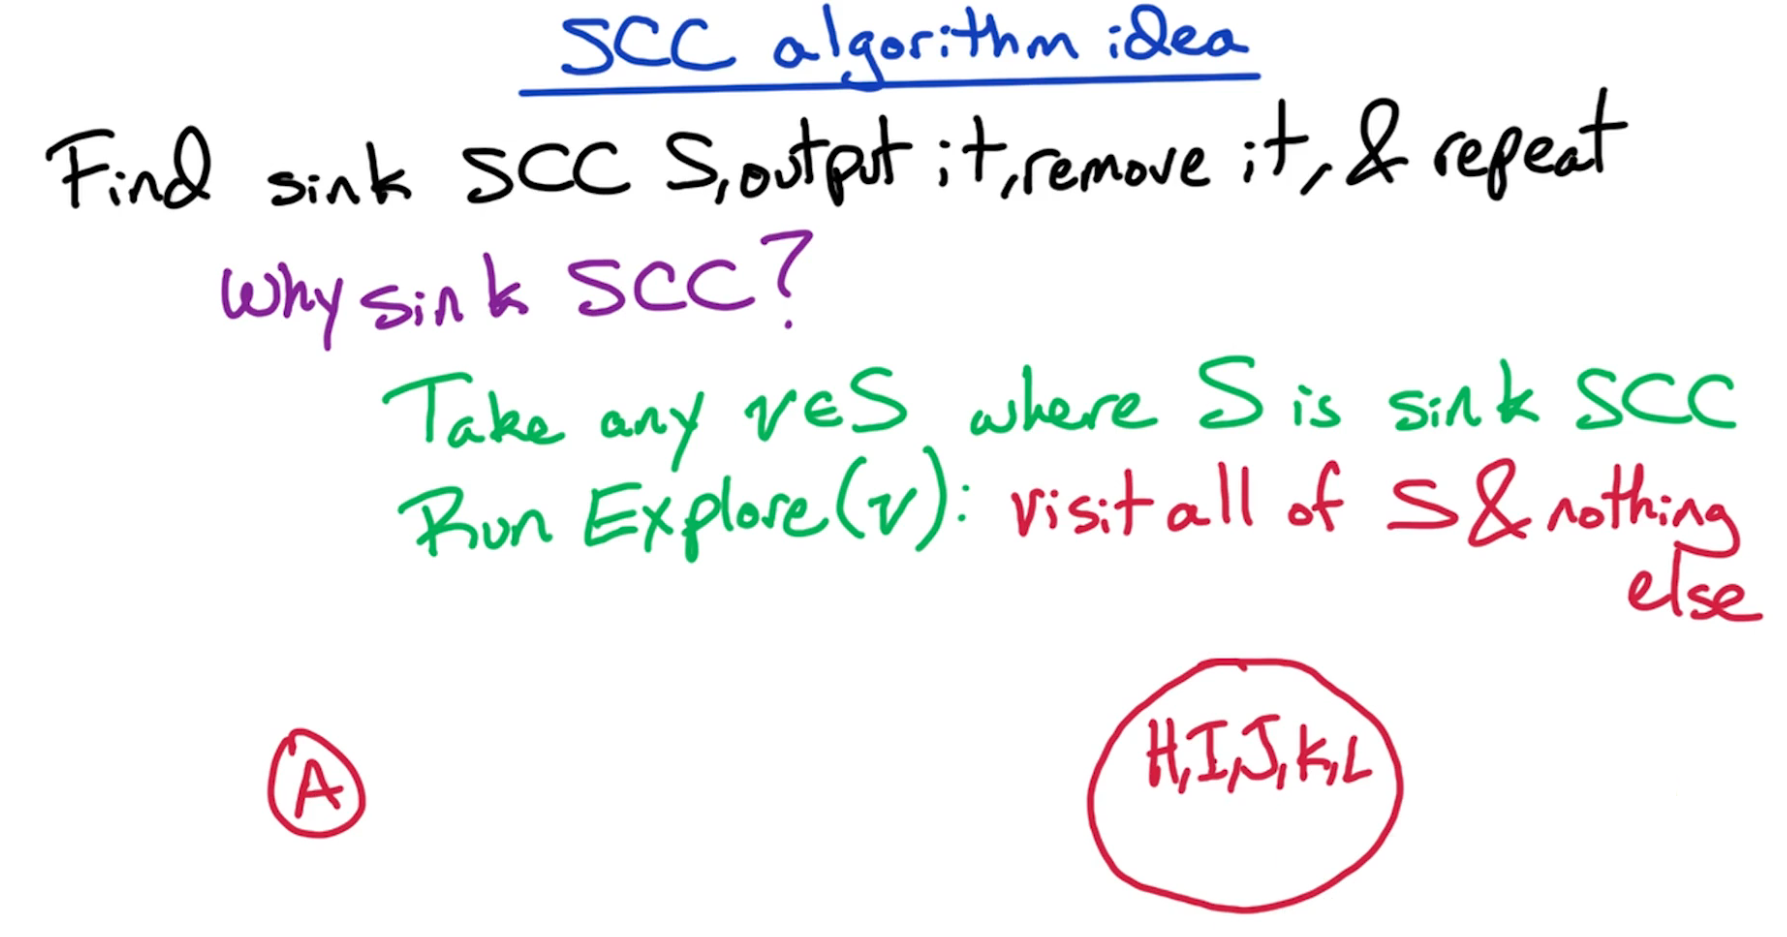 SCC algorithm idea
Find sink SCC S, output it, remove it, & repeat
Why sink SCC?
Take any v∈S where S is sink SCC
Run Explore(v): visit all of S & nothing
else
A
H, I, J, K, L